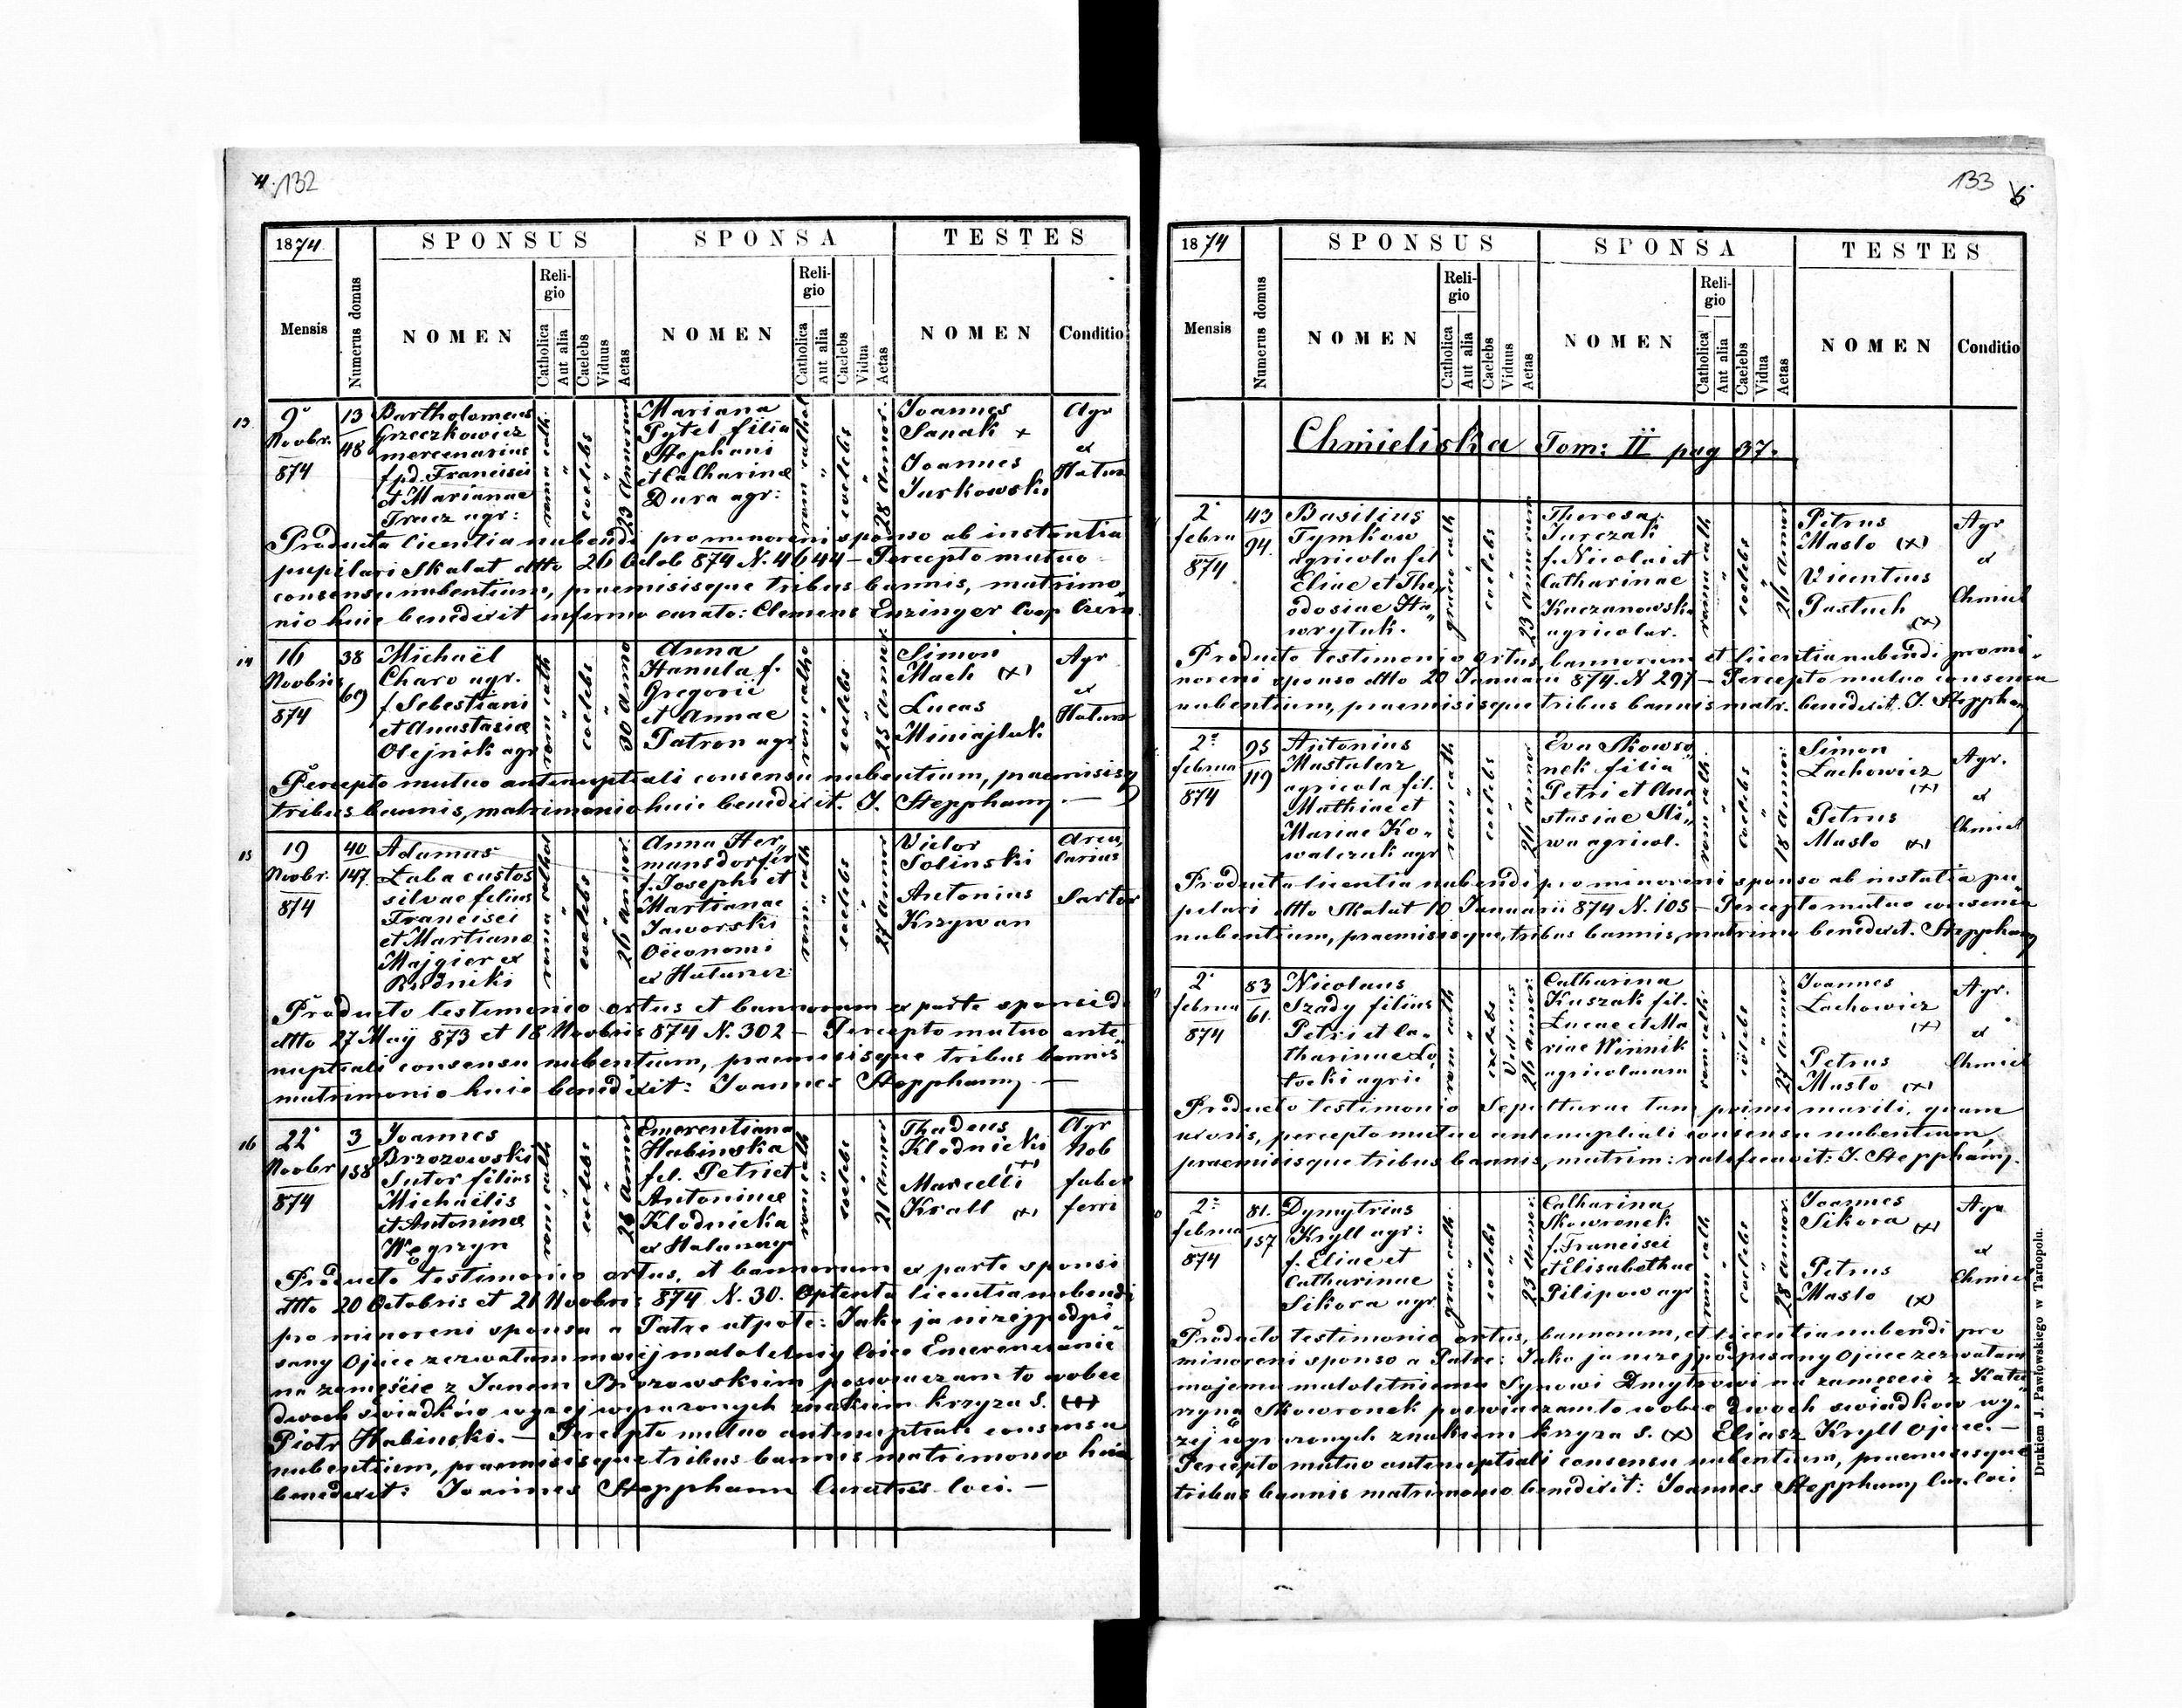 4. 132
1874
SPONSUS
SPONSA
TESTES
Mensis
Numerus domus
NOMEN
Religio
Catholica
Aut alia
Caelebs
Viduus
Aetas
NOMEN
Religio
Catholica
Aut alia
Caelebs
Vidua
Aetas
NOMEN
Conditio
13
9
Novbr.
874
13
48
Bartholomeus
Grzeczkowicz
mercenarius
f. pd. Francisci
et Marianae
Tracz agr:
rom: cath.
"
coelebs
"
23 Annorum
Mariana
Pytel filia
Stephani
et Catharinae
Dura agr:
rom cathol
"
coelebs
"
28 Annor.
Joannes
Sanak +
Joannes
Jurkowski
Agr
ex
Hatun
Producta licentia nubendi pro minoreni sponso ab instantia
pupilari Skalat dtto 26 Octob 874 N. 4644 – Percepto mutuo
consensu nubentium, praemisisque tribus bannis, matrimo„
nio huic benedixit infirmo curato: Clemens Enzinger Coop
14
16
Novbris
874
38
69
Michaël
Charo agr.
f Sebestiani
et Anastasiae
Olejnik agr
rom cath
"
coelebs
"
30 anno
Anna
Hanula f.
Gregorii
et Annae
Patron agr
rom catho
"
coelebs
"
25 annor
Simon
Mach (x)
Lucas
Miniajluk
Agr
ex
Hatun
Percepto mutuo antenuptiali consensu nubentium, praemisisq
tribus bannis, matrimonio huic benedixit. J. Stepphany –
15
19
Novbr.
874
40
147
Adamus
Laba custos
silvae filius
Francisci
et Martiane
Majgier ex
Rudniki
"
coelebs
26 annor.
Anna Her„
mansdorfer
f. Josephi et
Martianae
Jaworski
Oëconomi
ex Hatunez
rom: cath
"
coelebs
"
27 annor
Victor
Solinski
Antonius
Krzywan
Arcu,
larius
Sartor
Producto testimonio ortus et bannorum ex parte sponsi d
dtto 27 Maÿ 873 et 18 Novbris 874 N. 302 – Percepto mutuo ante„
nuptiali consensu nubentium, praemisisque tribus bannis
matrimonio huic benedixit: Joannes Stepphany –
16
22
Novbr
874
3
158
Joannes
Brzozowski
Sutor filius
Michaëlis
et Antoninae
Węgrzyn
rom cath
"
coelebs
"
28 annor
Emerentiana
Habinska
fil. Petri et
Antoninae
Klodnicka
ex Hatunez
rom cath
"
coelebs
"
21 annor
Thadeus
Klodnicki
(x)
Marcelli
Krall (x)
Agr
Nob
faber
ferri
Producto testimonio ortus, et bannorum ex parte sponsi
dtto 20 Octobris et 21 Novbris 874 N. 30. Optenta licentia nubendi
pro minoreni sponsa a Patre utpote: Jako ja niżej podpi„
sany Ojciec zezwalam mojej maloletniej Córce Emerencianie
na zamęście z Janem Brzozowskim poswiaczam to wobec
dwoch swiadków wyzej wyrazonych znakiem krzyza s. (+)
Piotr Habinski. – Percepto mutuo antenuptiali consensu
nubentium, praemisisque tribus bannis matrimonio huic
benedixit: Joannes Stepphann Curatus loci. –
133 5
1874
SPONSUS
SPONSA
TESTES
Mensis
Numerus domus
NOMEN
Religio
Catholica
Aut alia
Caelebs
Viduus
Aetas
NOMEN
Religio
Catholica
Aut alia
Caelebs
Vidua
Aetas
NOMEN
Conditio
Chmieliska Tom: II pag 37.
2
febru
874
43
94
Basilius
Tymkow
agricola fil
Eliae et The„
odosiae Ha„
wrytuk.
graeco cath
"
coelebs
"
23 annorum
Theresa
Jurczak
f. Nicolai et
Catharinae
Kaczanowska
agricolar.
romn cath
"
coelebs
"
26 annor
Petrus
Maslo (x)
Vicentius
Pastuch
(x)
Agr
ex
Chmiel
Producto testimonio ortus, bannorum et licentia nubendi pro mi„
noreni sponso dtto 20 Januarii 874. N 297 – Percepto mutuo consensu
nubentium, praemisisque tribus bannis matr. benedixit. J. Stepphany
2
februa
874
95
119
Antonius
Mastalerz
agricola fil.
Mathiae et
Mariae Ko„
walczuk agr
rom cath
"
coelebs
"
26 annor
Eva Skowro
nek filia
Petri et Ana
stasiae Sli„
wa agricol.
rom cath.
"
coelebs
"
18 annor.
Simon
Lachowicz
(x)
Petrus
Maslo (x)
Agr.
ex
Chmiel
Producta licentia nubendi pro minoreni sponso ab instatia pu„
pelari dtto Skalat 10 Januarii 874 N. 105 – Percepto mutuo consensu
nubentium, praemisisque, tribus bannis, matrimo benedixit. Stepphany
2
februa
874
83
61
Nicolaus
Szady filius
Petri et Ca„
tharinae Lo„
tocki agric
rom cath
"
coelebs
Viduus
26 annor.
Catharina
Kuszak fil.
Lucae et Ma
riae Winnik
agricolarum
rom cath
"
"
27 annor
Joannes
Lachowicz
(x)
Petrus
Maslo (x)
Agr.
ex
Chmiel
Producto testimonio Sepulturae tam primi mariti, quam
uxoris, percepto mutuo antenuptiali consensu nubentium,
praemisisque tribus bannis, matrim: ratificavit: J. Stepphany.
2
februa
874
81.
157
Dymytrius
Kryll agr:
f. Eliae et
Catharinae
Sikora agr.
graec. cath.
"
coelebs
"
23 annor.
Catharina
Skowronek
f. Francisci
et Elisabethae
Pilipow agr
rom cath
"
coelebs
"
28 annor.
Joannes
Sikora (x)
Petrus
Maslo (x)
Agr
ex
Chmiel
Producto testimonio ortus, bannorum, et licentia nubendi pro
minoreni sponso a Patre: Jako ja nizej podpisany Ojciec zezwalam
mojemu maloletniemu Synowi Dmytrowi na zamęscie z Kata„
rzyną Skowronek poswiaczam to wobec dwoch swiadkow wy„
zej wyrazonych znakiem krzyza s. (x) Eliasz Kryll ojciec. –
Percepto mutuo antenuptiali consensu nubentium, praemisisque
tribus bannis matrimonio benedixit: Joannes Stepphany Cur. loci
Drukiem J. Pawłowskiego w Tarnopolu.